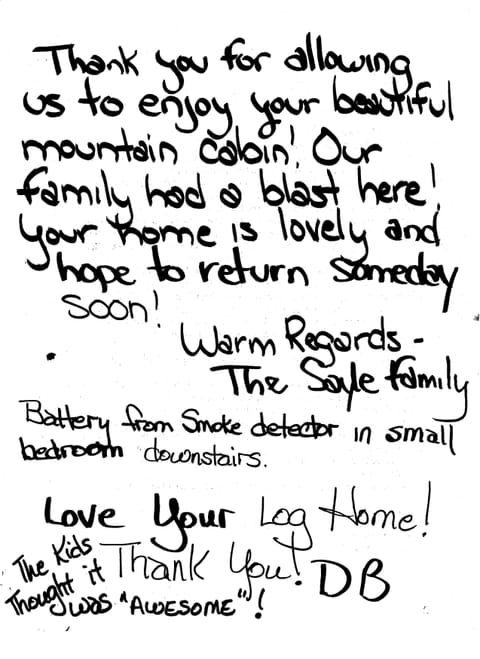 Thank you for allowing
us to enjoy your beautiful
mountain cabin! Our
family had a blast here!
Your home is lovely and
hope to return someday
soon!
Warm Regards -
The Sayle family
Battery from Smoke detector in small
bedroom downstairs.
Love Your Log Home!
Thank You! DB
The Kids
Thought it
was "AWESOME"!